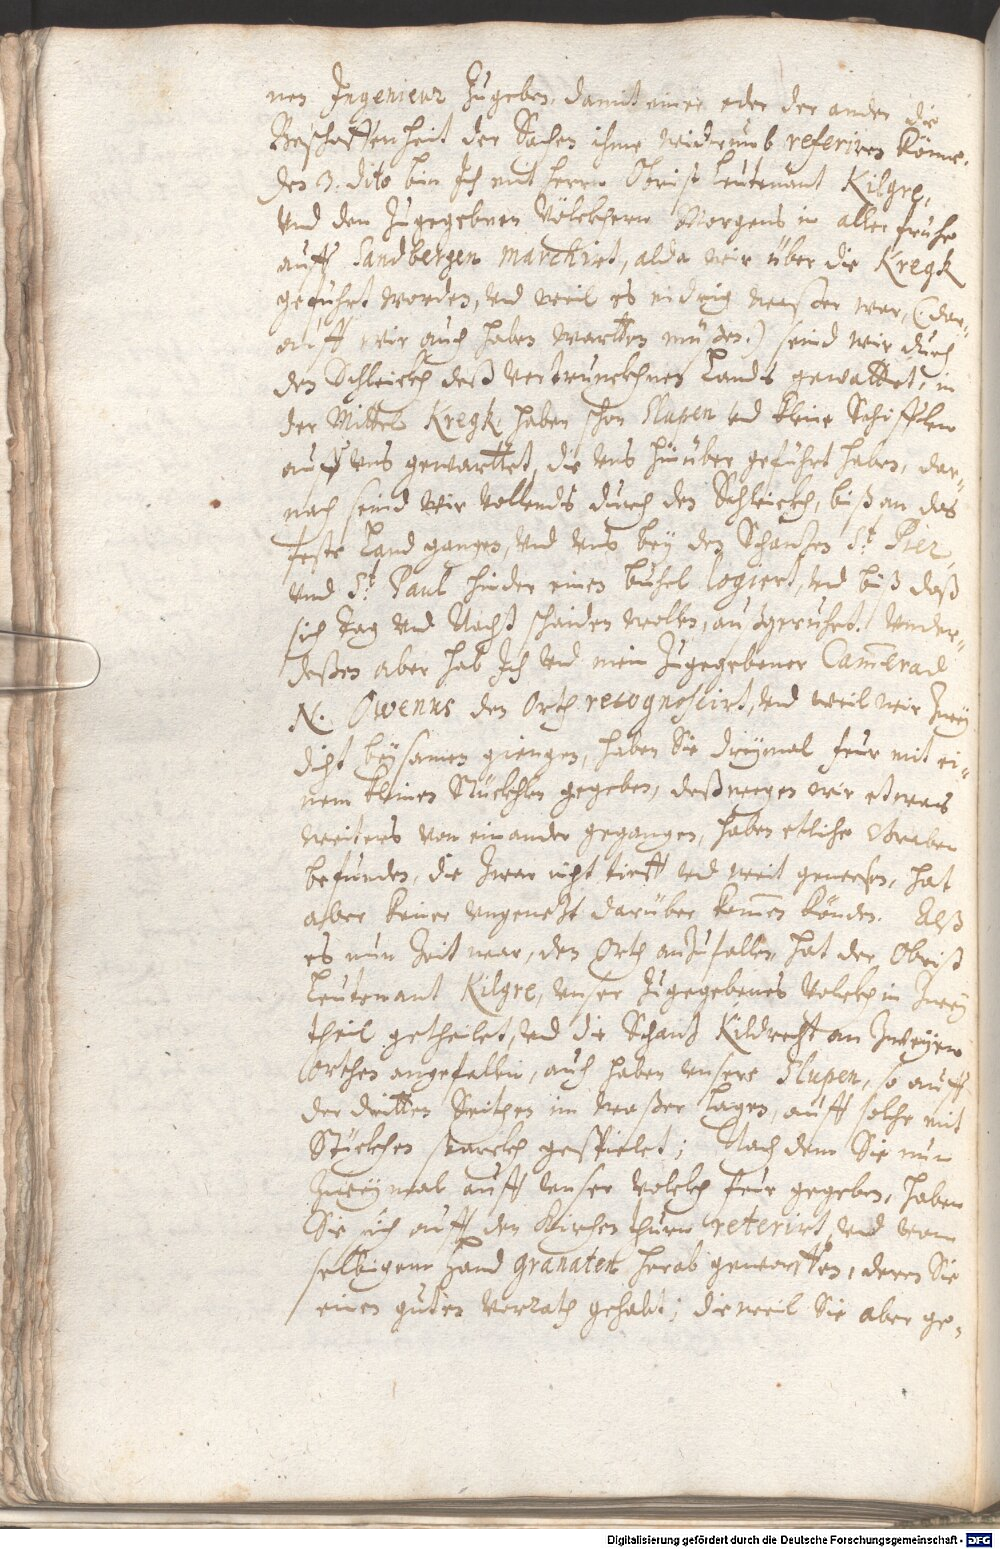 nen Ingenieur zugeben, damit einer oder der ander die
Beschaffenheit der Sachen ihme widerumb referiren könne.
den 3. dito bin Ich mit Herrn Obrist Leutenant Kilgre,
und den zugegebnen Völckhern Morgens in aller fruhe
auff Sandbergen marchirt, alda wir über die Kregk
geführt worden, und weil es nidrig wasser war, (: dar-
auff wir auch haben wartten müssen :) seind wir durch
den Schleickh deß vertrunckhnen Landts gewattet, in
der Mittel Kregk, haben schon Slupen und kleine Schifflen
auff uns gewarttet, die uns hinüber geführt haben, dar-
nach seind wir vollendts durch den Schleickh, biß an das
feste Land gangen, und uns bey den Schantzen St. Pier,
und St. Paul hinder einen buhel logiert, und biß daß
sich Tag und Nacht schaiden wollen, außgeruhet. Under-
deßen aber hab Ich und mein zugegebener Camerad
N. Owenus den Orth recognoscirt, und weil wir zwey
dicht beysamen giengen, haben Sie dreymal feur mit ei-
nem kleinen Stückhlen gegeben, deßwegen wir etwas
weiters von einander gegangen, haben etliche Graben
befunden, die zwar nicht tieff und weit gewesen, hat
aber keiner ungenetzt darüber komen können. Alß
es nun Zeit war, den Orth anzufallen, hat der Obrist
Leutenant Kilgre, unser zugegebenes Volckh in zwey
theil getheilet, und die Schantz Kildrecht an zweyen
Orthen angefallen, auch haben unsere Slupen, so auff
der dritten Seithen im waßer lagen, auff solche mit
Stückhen starckh gespielet; Nach dem Sie nun
zweymal auff unser volckh feur gegeben, haben
Sie sich auff den Kirchen thurn reterirt, und von
selbigem Hand granaten herab geworffen, deren Sie
einen guten vorrath gehabt; dieweil Sie aber ge-
Digitalisierung gefördert durch die Deutsche Forschungsgemeinschaft - DFG